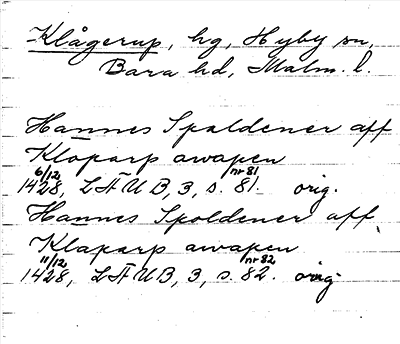 Klågerup, hg, Hyby sn,
Bara hd, Malm. l.
Hannes Spoldener aff
Kloparp awapen
6/12 nr 81
1428, LÄUB, 3, s. 81. orig.
Hannes Spoldener aff
Klaparp awapen
11/12 nr 82
1428, LÄUB, 3, s. 82. orig